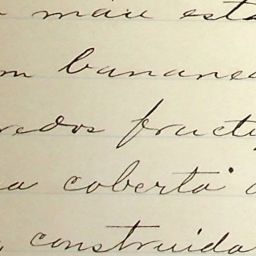 mau esta
m banane
redos fructi
a coberta
construida